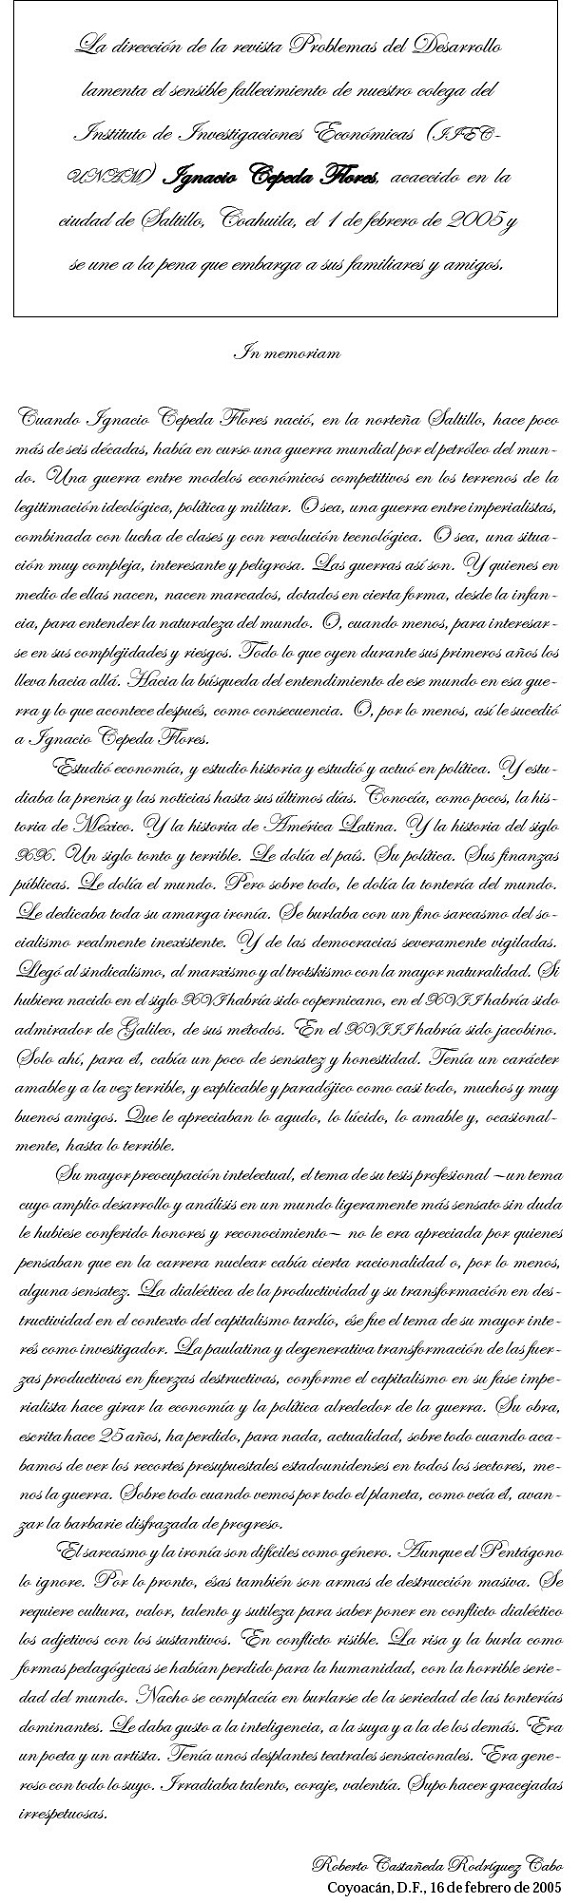 La dirección de la revista Problemas del Desarrollo
lamenta el sensible fallecimiento de nuestro colega del
Instituto de Investigaciones Económicas (IIEC-
UNAM) Ignacio Cepeda Flores, acaecido en la
ciudad de Saltillo, Coahuila, el 1 de febrero de 2005 y
se une a la pena que embarga a sus familiares y amigos.
In memoriam
Cuando Ignacio Cepeda Flores nació, en la norteña Saltillo, hace poco
más de seis décadas, había en curso una guerra mundial por el petróleo del mun-
do. Una guerra entre modelos económicos competitivos en los terrenos de la
legitimación ideológica, política y militar. O sea, una guerra entre imperialistas,
combinada con lucha de clases y con revolución tecnológica. O sea, una situa-
ción muy compleja, interesante y peligrosa. Las guerras así son. Y quienes en
medio de ellas nacen, nacen marcados, dotados en cierta forma, desde la infan-
cia, para entender la naturaleza del mundo. O, cuando menos, para interesar-
se en sus complejidades y riesgos. Todo lo que oyen durante sus primeros años los
lleva hacia allá. Hacia la búsqueda del entendimiento de ese mundo en esa gue-
rra y lo que acontece después, como consecuencia. O, por lo menos, así le sucedió
a Ignacio Cepeda Flores.
Estudió economía, y estudio historia y estudió y actuó en política. Y estu-
diaba la prensa y las noticias hasta sus últimos días. Conocía, como pocos, la his-
toria de México. Y la historia de América Latina. Y la historia del siglo
XX. Un siglo tonto y terrible. Le dolía el país. Su política. Sus finanzas
públicas. Le dolía el mundo. Pero sobre todo, le dolía la tontería del mundo.
Le dedicaba toda su amarga ironía. Se burlaba con un fino sarcasmo del so-
cialismo realmente inexistente. Y de las democracias severamente vigiladas.
Llegó al sindicalismo, al marxismo y al trotskismo con la mayor naturalidad. Si
hubiera nacido en el siglo XVI habría sido copernicano, en el XVII habría sido
admirador de Galileo, de sus métodos. En el XVIII habría sido jacobino.
Solo ahí, para él, cabía un poco de sensatez y honestidad. Tenía un carácter
amable y a la vez terrible, y explicable y paradójico como casi todo, muchos y muy
buenos amigos. Que le apreciaban lo agudo, lo lúcido, lo amable y, ocasional-
mente, hasta lo terrible.
Su mayor preocupación intelectual, el tema de su tesis profesional –un tema
cuyo amplio desarrollo y análisis en un mundo ligeramente más sensato sin duda
le hubiese conferido honores y reconocimiento– no le era apreciada por quienes
pensaban que en la carrera nuclear cabía cierta racionalidad o, por lo menos,
alguna sensatez. La dialéctica de la productividad y su transformación en des-
tructividad en el contexto del capitalismo tardío, ése fue el tema de su mayor inte-
rés como investigador. La paulatina y degenerativa transformación de las fuer-
zas productivas en fuerzas destructivas, conforme el capitalismo en su fase impe-
rialista hace girar la economía y la política alrededor de la guerra. Su obra,
escrita hace 25 años, ha perdido, para nada, actualidad, sobre todo cuando aca-
bamos de ver los recortes presupuestales estadounidenses en todos los sectores, me-
nos la guerra. Sobre todo cuando vemos por todo el planeta, como veía él, avan-
zar la barbarie disfrazada de progreso.
El sarcasmo y la ironía son difíciles como género. Aunque el Pentágono
lo ignore. Por lo pronto, ésas también son armas de destrucción masiva. Se
requiere cultura, valor, talento y sutileza para saber poner en conflicto dialéctico
los adjetivos con los sustantivos. En conflicto risible. La risa y la burla como
formas pedagógicas se habían perdido para la humanidad, con la horrible serie-
dad del mundo. Nacho se complacía en burlarse de la seriedad de las tonterías
dominantes. Le daba gusto a la inteligencia, a la suya y a la de los demás. Era
un poeta y un artista. Tenía unos desplantes teatrales sensacionales. Era gene-
roso con todo lo suyo. Irradiaba talento, coraje, valentía. Supo hacer gracejadas
irrespetuosas.
Roberto Castañeda Rodríguez Cabo
Coyoacán, D.F., 16 de febrero de 2005